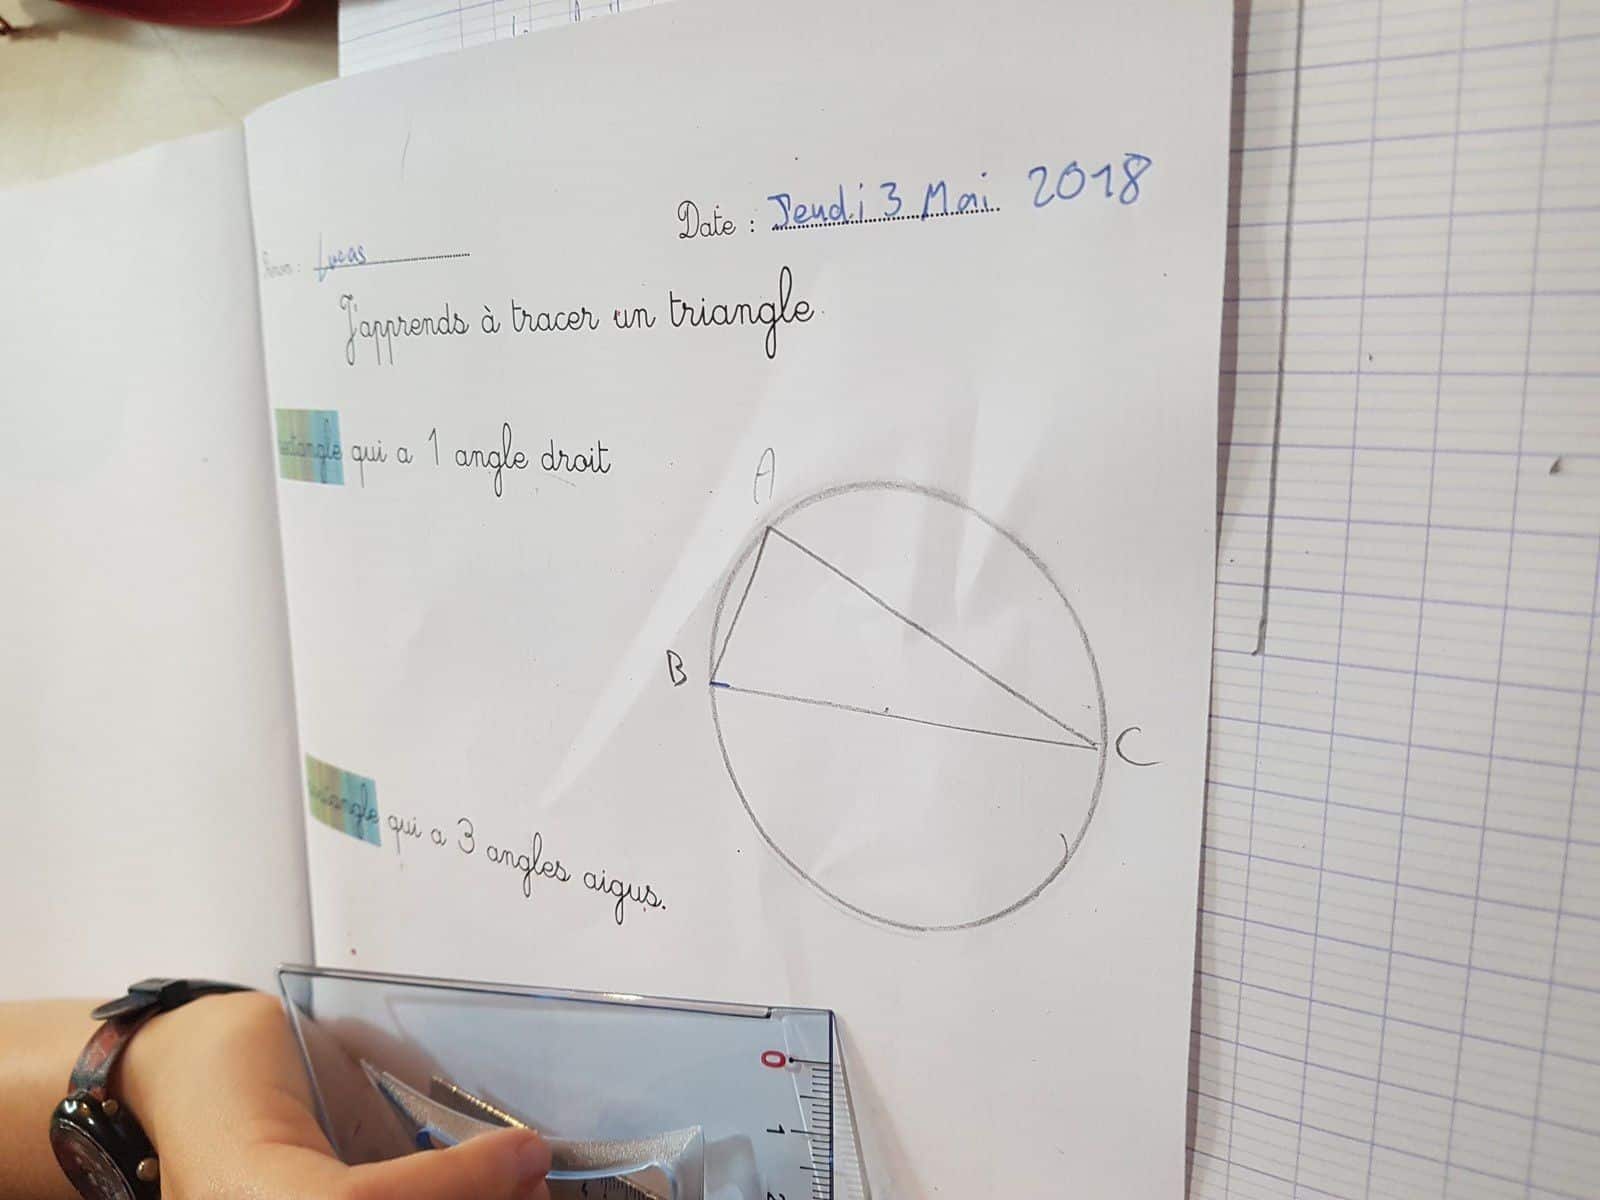 Date : Jeudi 3 Mai 2018
Prénom : Lucas
J'apprends à tracer un triangle
rectangle qui a 1 angle droit
A
B
C
qui a 3 angles aigus.
0
1
2